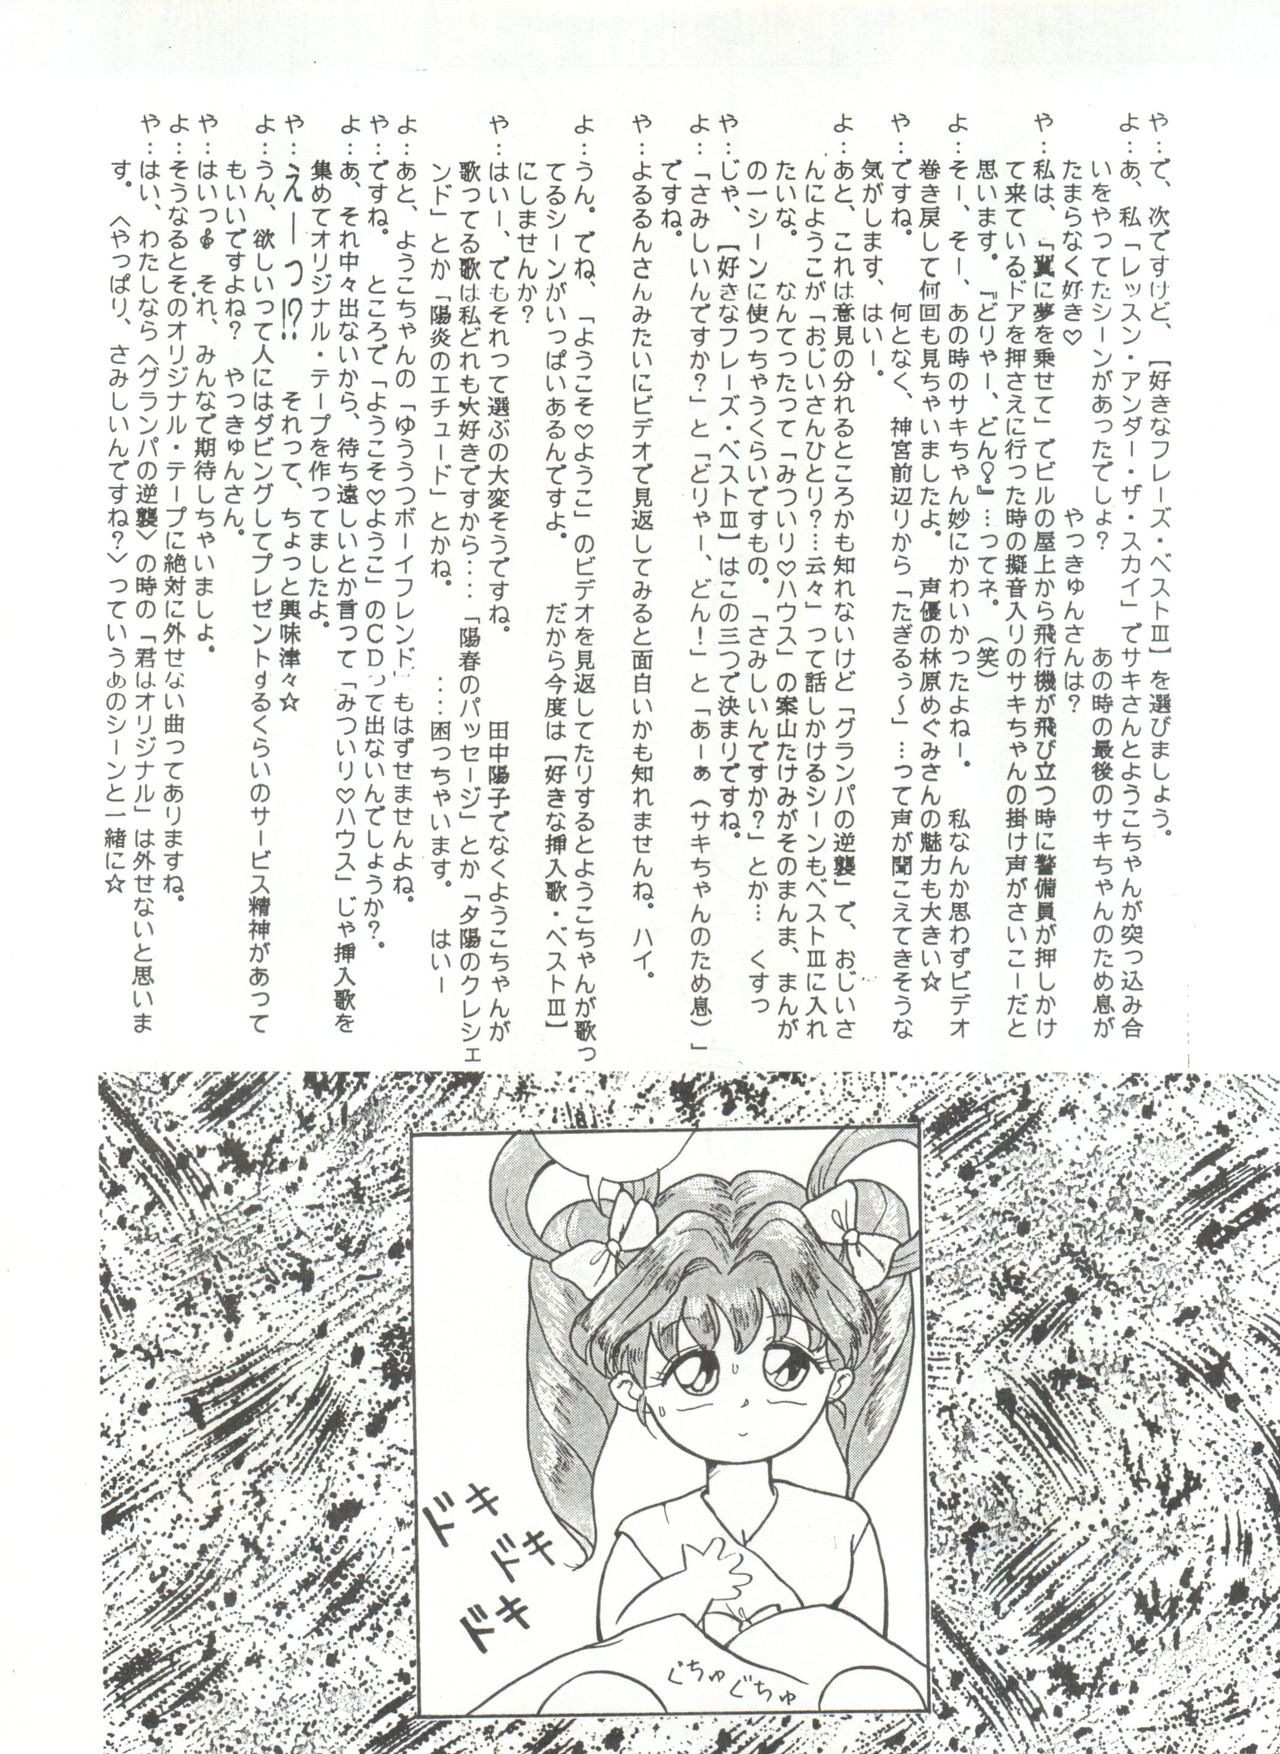 や…で、次ですけど、［好きなフレーズ・ベストⅢ］を選びましょう。
よ…あ、私「レッスン・アンダー・ザ・スカイ」でサキさんとようこちゃんが突っ込み合
いをやってたシーンがあったでしょ？　あの時の最後のサキちゃんのため息が
たまらなく好き♡　やっきゅんさんは？
や…私は、「翼に夢を乗せて」でビルの屋上から飛行機が飛び立つ時に警備員が押しかけ
て来ているドアを押さえに行った時の擬音入りのサキちゃんの掛け声がさいこーだと
思います。『どりゃー、どん!』…ってネ。（笑）
よ…そー、そー、あの時のサキちゃん妙にかわいかったよねー。　私なんか思わずビデオ
巻き戻して何回も見ちゃいましたよ。　声優の林原めぐみさんの魅力も大きい☆
や…ですね。　何となく、神宮前辺りから「たぎるぅ〜」…って声が聞こえてきそうな
気がします、はいー。
よ…あと、これは意見の分れるところかも知れないけど「グランパの逆襲」で、おじいさ
んにようこが「おじいさんひとり？…云々」って話しかけるシーンもベストⅢに入れ
たいな。　なんてったって「みついり♡ハウス」の案山たけみがそのまんま、まんが
の一シーンに使っちゃうくらいですもの。「さみしいんですか？」とか… くすっ
や…じゃ、［好きなフレーズ・ベストⅢ］はこの三つで決まりですね。
よ…「さみしいんですか？」と「どりゃー、どん！」と「あーぁ（サキちゃんのため息）」
ですね。
や…よるるんさんみたいにビデオで見返してみると面白いかも知れませんね。ハイ。
よ…うん。でね、「ようこそ♡ようこ」のビデオを見返してたりするとようこちゃんが歌っ
てるシーンがいっぱいあるんですよ。　だから今度は［好きな挿入歌・ベストⅢ］
にしませんか？
や…はいー、でもそれって選ぶの大変そうですね。　田中陽子でなくようこちゃんが
歌ってる歌は私どれも大好きですから…．「陽春のパッセージ」とか「夕陽のクレシェ
ンド」とか「陽炎のエチュード」とかね。　….困っちゃいます。　はいー
よ…あと、ようこちゃんの「ゆううつボーイフレンド」もはずせませんよね。
や…ですね。　ところで「ようこそ♡ようこ」のCDって出ないんでしょうか？。
よ…あ、それ中々出ないから、待ち遠しいとか言って「みついり♡ハウス」じゃ挿入歌を
集めてオリジナル・テープを作ってましたよ。
や…えーっ!?　それって、ちょっと興味津々☆
よ…うん、欲しいって人にはダビングしてプレゼントするくらいのサービス精神があって
もいいですよね？　やっきゅんさん。
や…はいっ　それ、みんなで期待しちゃいましょ。
よ…そうなるとそのオリジナル・テープに絶対に外せない曲ってありますね。
や…はい、わたしなら〈グランパの逆襲〉の時の「君はオリジナル」は外せないと思いま
す。〈やっぱり、さみしいんですね？〉っていうあのシーンと一緒に☆
ドキ
ドキ
ドキ
ぐちゅぐちゅ